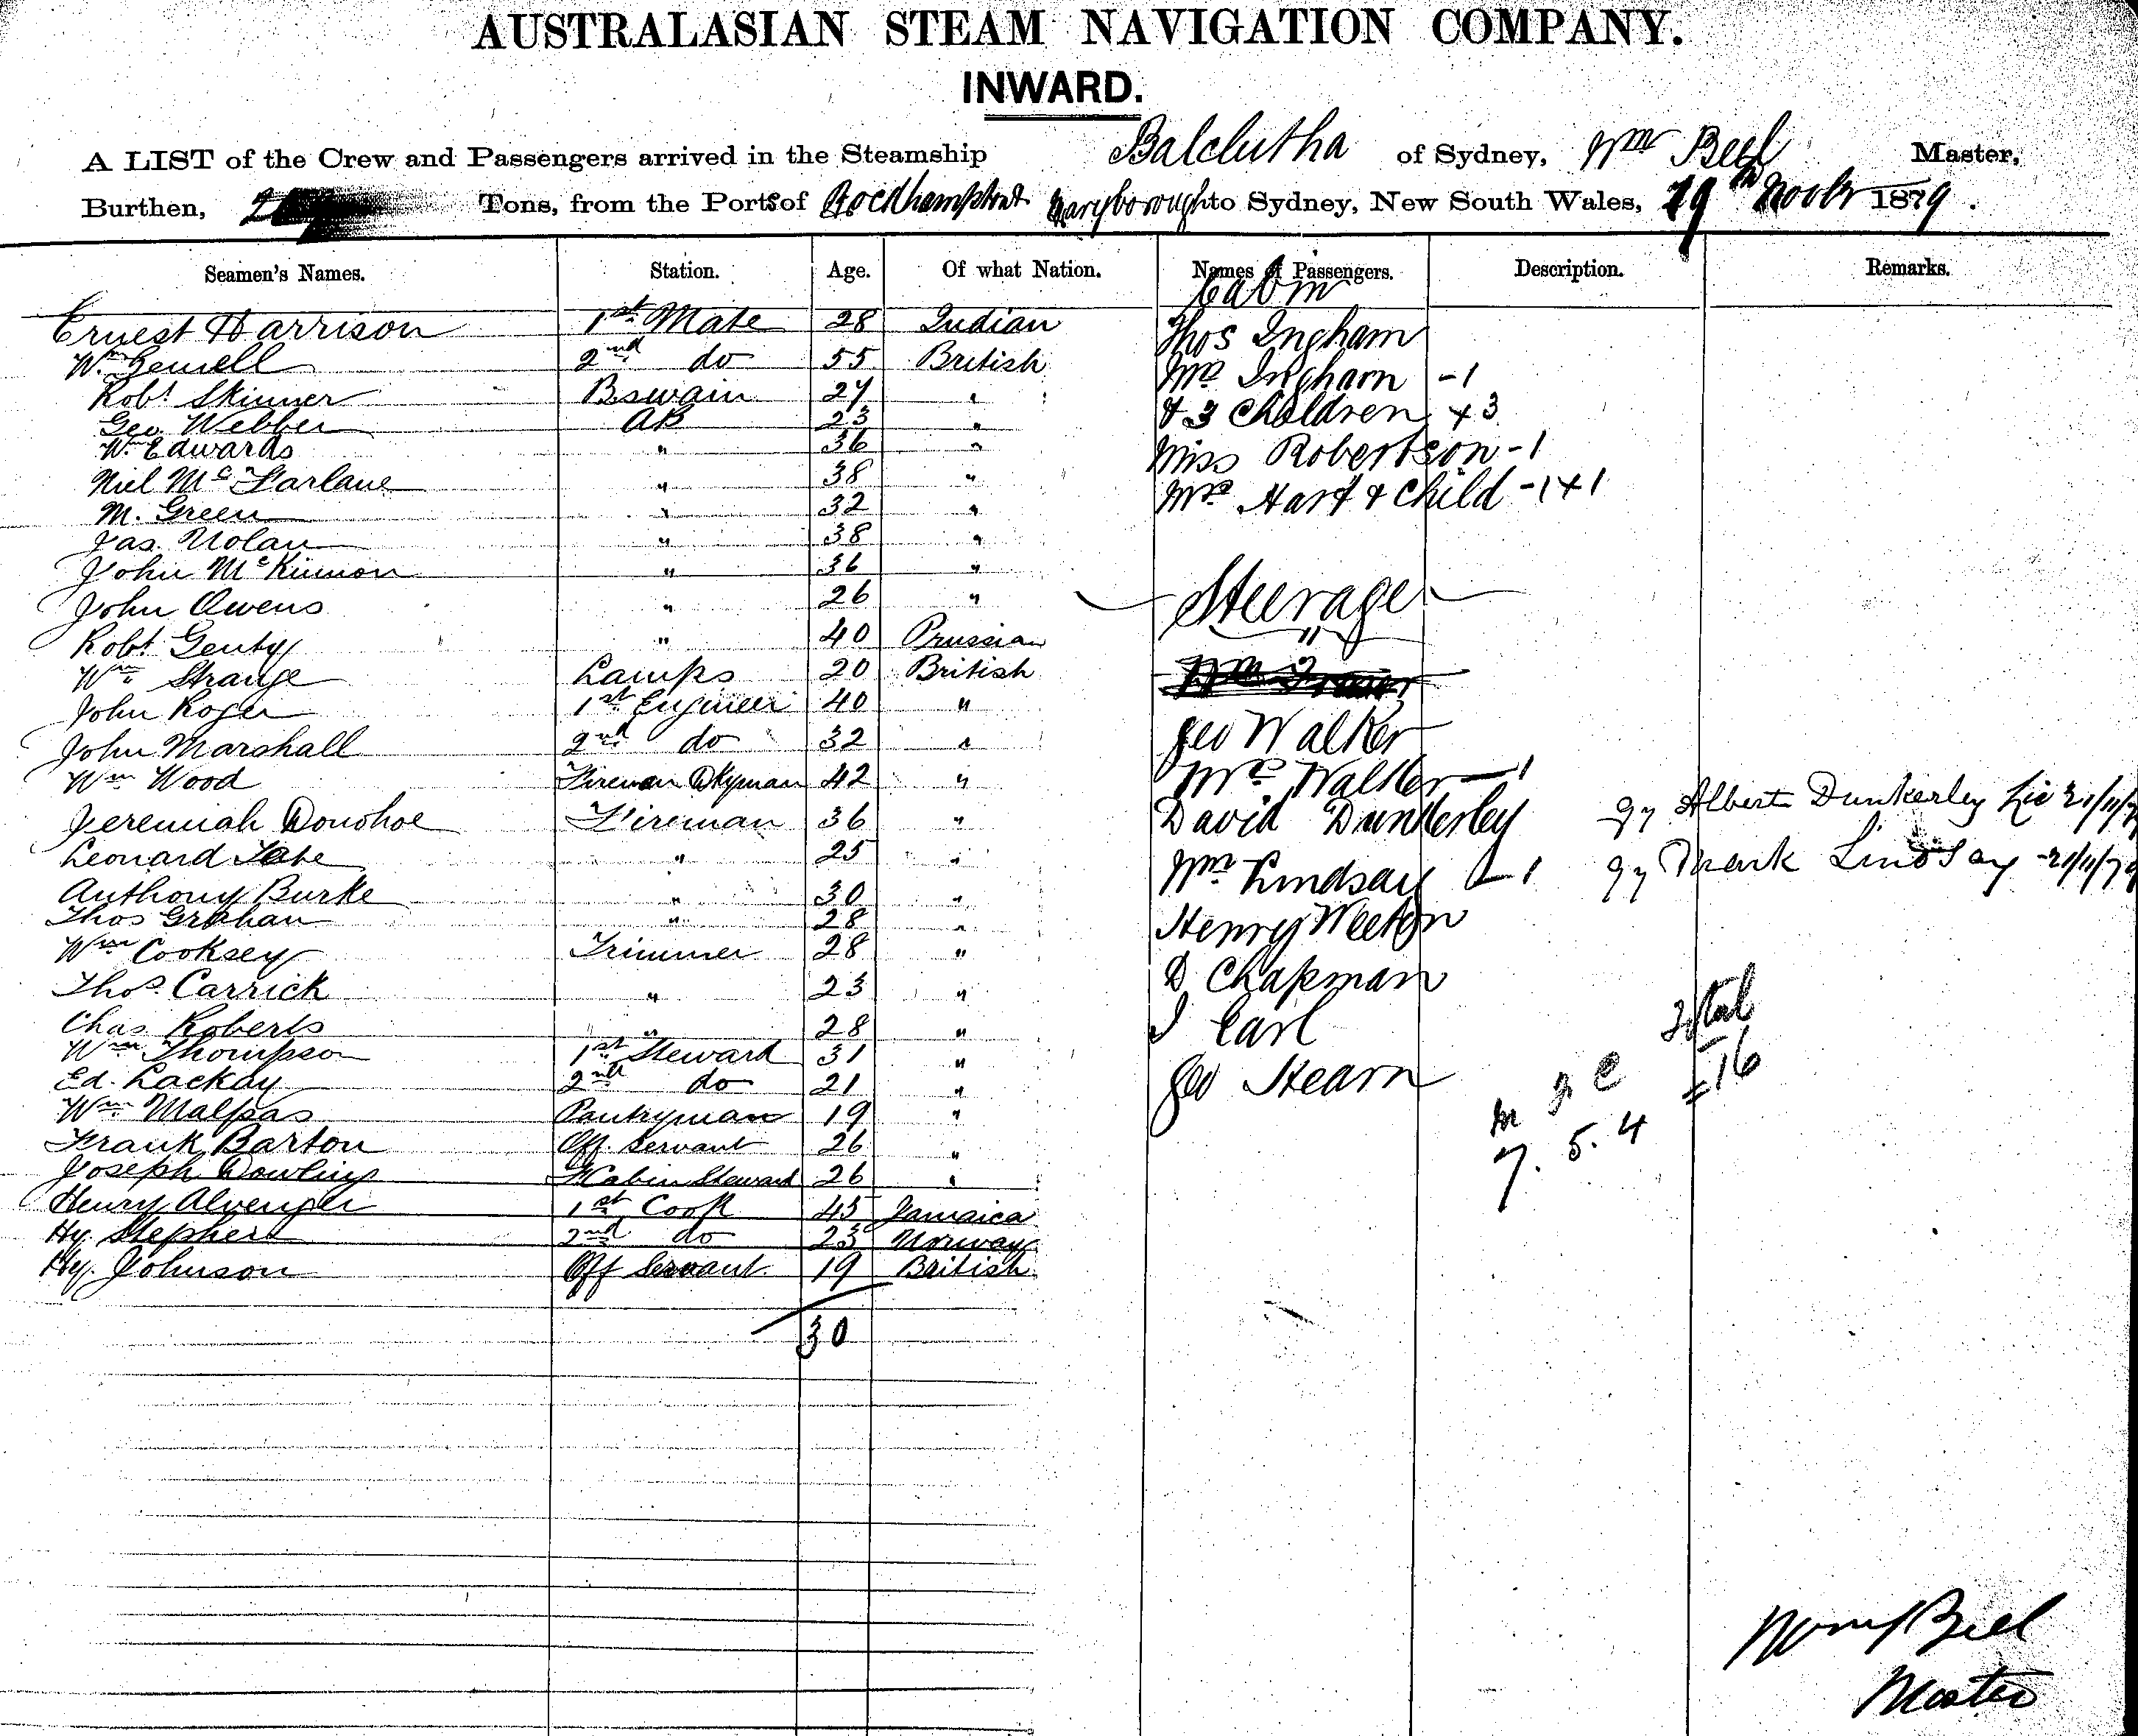 AUSTRALASIAN STEAM NAVIGATION COMPANY.
INWARD.
A LIST of the Crew and Passengers arrived in the Steamship Balclutha of Sydney, Wm Beel Master,
Burthen, Tons, from the Ports of Rockhampton & Maryborough to Sydney, New South Wales, 19th Novbr 1879.
Seamen's Names. Station. Age. Of what Nation. Names of Passengers. Description. Remarks.
Cabin
Ernest Harrison 1st Mate 28 Indian Thos Ingham
Wm Gewell 2nd do 55 British Mrs Ingham -1
Robt Skinner Bswain 27 " & 3 Children +3
Geo Webber AB 23 "
Wm Edwards " 36 " Miss Robertson -1
Niel McFarlane " 38 " Mrs Hart & Child -1+1
M. Green " 32 "
Jas. Nolan " 38 "
John McKinnon " 36 "
John Owens " 26 " Steerage
Robt Genty " 40 Prussian
Wm Strange Lamps 20 British
John Roger 1st Engineer 40 " Geo Walker
John Marshall 2nd do 32 "
Wm Wood Fireman Dkyman 42 " Mrs Walker -1
Jeremiah Donohoe Fireman 36 " David Dunkerley Albert Dunkerley 21/11/79
Leonard Tate " 25 " Wm Lindsay -1 Mark Lindsay 21/11/79
Anthony Burke " 30 "
Thos Grahan " 28 " Henry Weeton
Wm Cooksey Trimmer 28 "
Thos. Carrick " 23 " D Chapman
Chas Roberts " 28 " J Earl Total
Wm Thompson 1st Steward 31 "
Ed. Lackay 2nd do 21 " Geo Stearn m f c = 16
Wm Malpas Pantryman 19 " 7. 5. 4
Frank Barton Off. Servant 26 "
Joseph Dowling F Cabin Steward 26 "
Henry Alvenger 1st Cook 45 Jamaica
Hy. Stephert 2nd do 23 Norway
Hy. Johnson Off Servant 19 British
30
Wm Beel
Master